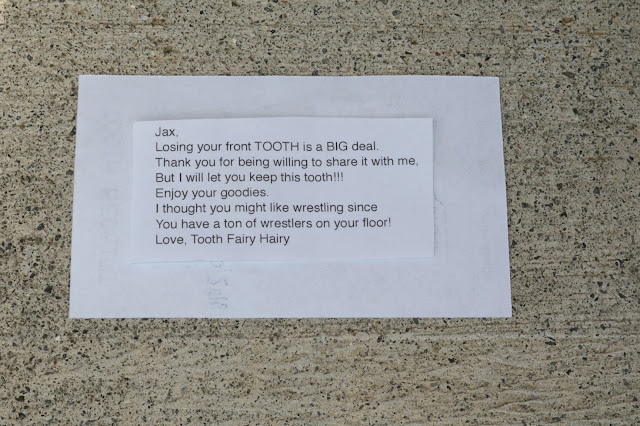 Jax,
Losing your front TOOTH is a BIG deal.
Thank you for being willing to share it with me,
But I will let you keep this tooth!!!
Enjoy your goodies.
I thought you might like wrestling since
You have a ton of wrestlers on your floor!
Love, Tooth Fairy Hairy